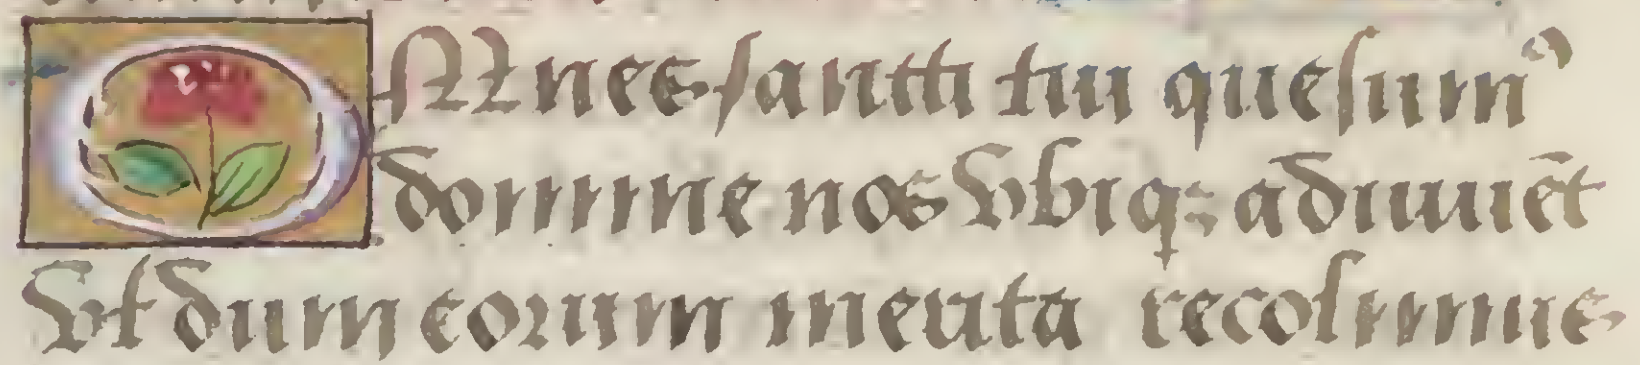 OMnes sancti tui quesum᾿
domine nos vbiq; adiuuēt
vt dum eorum merita recolimus